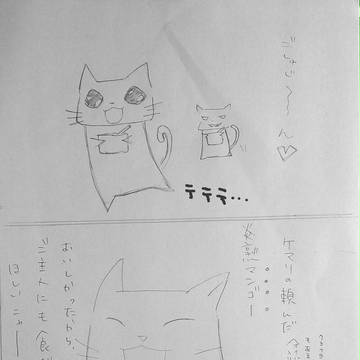 ごしゅじ〜〜ん♡
テテテ…
ケマリの頼んだ
完熟マンゴー
おいしかったから、
ご主人にも食
ほしいニャー